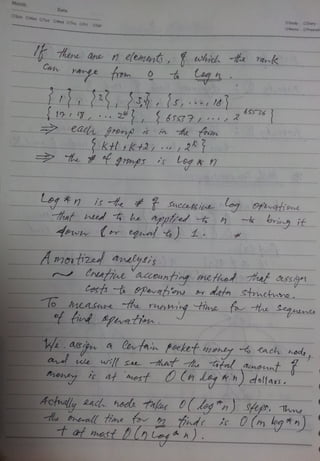 Date
If there are n elements, of which the rank
can range from 0 to Log n.
{1}, {2}, {3,4}, {5, ..., 16}
{17, 18, ... 2^16}, {65537, ..., 2^65536}
⇒ each group is in the form
{k+1, k+2, ..., 2^k}
⇒ the # of groups is Log * n
Log * n is the # of successive Log operations
that need to be applied to n to bring it
down (or equal to) 1.
Amortized analysis
~ Creative accounting method that assign
costs to operations on data structure.
To measure the running time for the sequence
of find operation.
We assign a certain pocket money to each node,
and we will see that the total amount of
money is at most O(n log * n) dollars.
Actually each node takes O(log * n) steps. Thus
the overall time for m finds is O(m log * n)
+ at most O(n Log * n).